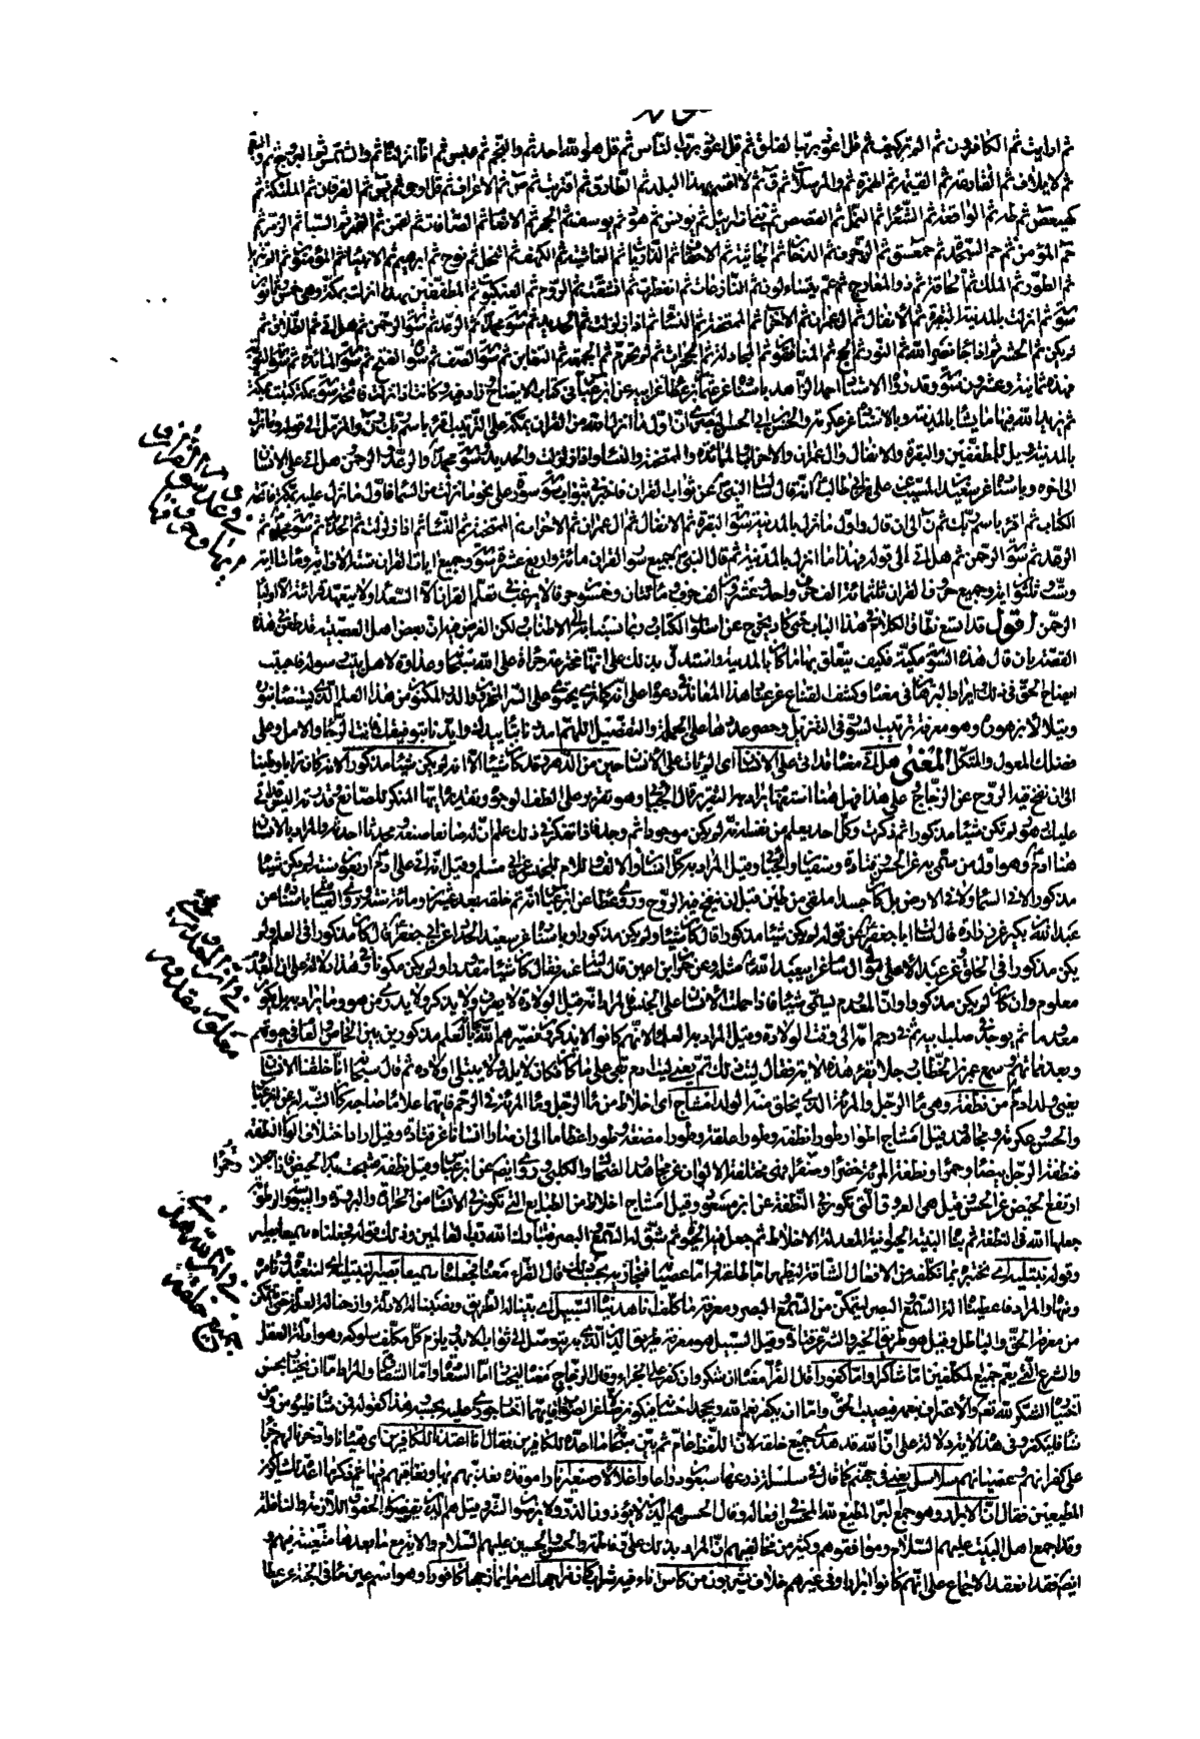 ثم ارايت ثم الكافرون ثم الم تر كيف ثم قل اعوذ برب الفلق ثم قل اعوذ برب الناس ثم قل هو الله احد ثم والنجم ثم عبس ثم انا انزلناه ثم والشمس ثم البروج ثم والتين
ثم لايلاف ثم القارعة ثم القيمة ثم الهمزة ثم والمرسلات ثم ق ثم لا اقسم بهذا البلد ثم الطارق ثم اقتربت ثم ص ثم الاعراف ثم قل اوحى ثم يس ثم الفرقان ثم الملئكة ثم
كهيعص ثم طه ثم الواقعة ثم الشعراء ثم النمل ثم القصص ثم بنى اسرائيل ثم يونس ثم هود ثم يوسف ثم الحجر ثم الانعام ثم الصافات ثم لقمن ثم القمر ثم السبا ثم الزمر ثم
حم المؤمن ثم حم السجدة ثم حمعسق ثم الزخرف ثم الدخان ثم الجاثية ثم الاحقاف ثم الذاريات ثم الغاشية ثم الكهف ثم النحل ثم نوح ثم ابرهيم ثم الانبياء ثم المؤمنون ثم الم تنزيل
ثم الطور ثم الملك ثم الحاقة ثم ذو المعارج ثم عم يتساءلون ثم النازعات ثم انفطرت ثم انشقت ثم الروم ثم العنكبوت ثم المطففين فهذه انزلت بمكة وهى خمس وثمانون
سورة ثم انزلت بالمدينة البقرة ثم الانفال ثم ال عمران ثم الاحزاب ثم الممتحنة ثم النساء ثم اذا زلزلت ثم الحديد ثم سورة محمد ثم الرعد ثم سورة الرحمن ثم هل اتى ثم الطلاق ثم
لم يكن ثم الحشر ثم اذا جاء نصر الله ثم النور ثم الحج ثم المنافقون ثم المجادلة ثم الحجرات ثم لم تحرم ثم الجمعة ثم التغابن ثم سورة الصف ثم سورة الفتح ثم سورة المائدة ثم سورة التوبة
فهذه ثمانية وعشرون سورة وقد رواه الاستاد احمد الزاهد باسناده عن عثمان بن عطا عن ابيه عن ابن عباس فى كتاب الايضاح وزاد فيه وكانت اذا نزلت فاتحة سورة بمكة كتبت بمكة
ثم يزيد الله فيها ما يشاء بالمدينة وباسناده عن عكرمة والحسن بن ابى الحسن البصرى ان اول ما انزل الله من القران بمكة على الترتيب اقرء باسم ربك ون والمزمل الى قوله وما نزل
بالمدينة ويل للمطففين والبقرة والانفال وال عمران والاحزاب والمائدة والممتحنة والنساء واذا زلزلت والحديد وسورة محمد والرعد والرحمن وهل اتى على الانسان
الى اخره وباسناده عن سعيد بن المسيب عن على بن ابى طالب انه قال سالت النبى عن ثواب القران فاخبرنى بثواب سورة سورة على نحو ما نزلت من السماء فاول ما نزل عليه بمكة فاتحة
الكتاب ثم اقرء باسم ربك ثم ن الى ان قال واول ما نزل بالمدينة سورة البقرة ثم الانفال ثم ال عمران ثم الاحزاب ثم الممتحنة ثم النساء ثم اذا زلزلت ثم الحديد ثم سورة محمد ثم
الرعد ثم سورة الرحمن ثم هل اتى الى قوله فهذا ما انزل بالمدينة ثم قال النبى جميع سور القران مائة واربع عشرة سورة وجميع ايات القران ستة الاف اية ومائتا اية
وست وثلثون اية وجميع حروف القران ثلثمائة الف حرف واحد وعشرون الف حرف ومائتان وخمسون حرفا لا يرغب فى تعلم القران الا السعداء ولا يتعهد قراءته الا اولياء
الرحمن اقول قد اتسع نطاق الكلام فى هذا الباب حتى كاد يخرج عن اسلوب الكتاب وربما نسبنا به الى الاطناب ولكن الغرض فيه ان بعض اهل العصبية قد طعن فى هذه
القصة بان قال هذه السورة مكية فكيف يتعلق بها ما كان بالمدينة واستدل بذلك على انها مخترعة جراة على الله سبحانه وعداوة لاهل بيت رسوله فاحببت
ايضاح الحق فى ذلك وايراد البرهان فى معناه وكشف القناع عن عناد هذا المعاند فى دعواه على انه كما ترى يحتوى على السر المخزون والدر المكنون من هذا العلم الذى يستضاء بنوره
ويتلالا بزهوره وهو معرفة ترتيب السور فى التنزيل وحصر عددها على الجملة والتفصيل اللهم امددنا بتاييدك وايدنا بتوفيقك فانت الرجاء والامل وعلى
فضلك المعول والمتكل المعنى هل اتى معناه قد اتى على الانسان اى الم يات على الانسان حين من الدهر وقد كان شيئا الا انه لم يكن شيئا مذكورا لانه كان ترابا وطينا
الى ان نفخ فيه الروح عن الزجاج وعلى هذا فهل هنا استفهام يراد به التقرير قال الجبائى وهو تقرير على الطف الوجوه وتقديره ايها المنكر للصانع وقدرته اليس قد اتى
عليك دهور لم تكن شيئا مذكورا ثم ذكرت وكل احد يعلم من نفسه انه لم يكن موجودا ثم وجد فاذا تفكر فى ذلك علم ان له صانعا صنعه ومحدثا احدثه والمراد بالانسان
هنا ادم وهو اول من سمى به عن الحسن وقتادة وسفيان والجبائى وقيل المراد به كل انسان والالف واللام للجنس عن ابى مسلم وقيل انه اتى على ادم اربعون سنة لم يكن شيئا
مذكورا لا فى السماء ولا فى الارض بل كان جسدا ملقى من طين قبل ان ينفخ فيه الروح وروى عطا عن ابن عباس انه تم خلقه بعد عشرين ومائة سنة وروى العياشى باسناده عن
عبد الله بن بكير عن زرارة قال سالت ابا جعفر عن قوله لم يكن شيئا مذكورا قال كان شيئا ولم يكن مذكورا وباسناده عن سعيد الحداد عن ابى جعفر قال كان مذكورا فى العلم ولم
يكن مذكورا فى الخلق وعن عبد الاعلى مولى ال سام عن ابى عبد الله مثله وعن حمران بن اعين قال سالته عنه فقال كان شيئا مقدورا ولم يكن مكونا وفى هذا دلالة على ان المعدوم
معلوم وان كان لم يكن مذكورا وان المعدوم يسمى شيئا فاذا حملت الانسان على الجنس فالمراد انه قبل الولادة لا يعرف ولا يذكر ولا يدرى من هو وما يراد به بل يكون
معدوما ثم يوجد فى صلب ابيه ثم فى رحم امه الى وقت الولادة وقيل المراد به العلماء لانهم كانوا لا يذكرون فصيرهم الله بالعلم مذكورين بين الخاص والعام فى حيوتهم
وبعد مماتهم وسمع عمر بن الخطاب رجلا يقرء هذه الاية فقال ليت ذلك تم يعنى ليت ادم بقى على ما كان فكان لا يلد ولا يبتلى اولاده ثم قال سبحانه انا خلقنا الانسان
يعنى ولد ادم من نطفة وهى ماء الرجل والمرءة الذى يخلق منه الولد امشاج اى اخلاط من ماء الرجل وماء المراة فى الرحم فايهما علا ماء صاحبه كان الشبه له عن ابن عباس
والحسن وعكرمة ومجاهد وقيل امشاج اطوار طورا نطفة وطورا علقة وطورا مضغة وطورا عظاما الى ان صار انسانا عن قتادة وقيل اراد اختلاف الوان النطفة
فنطفة الرجل بيضاء وحمراء ونطفة المرءة خضراء وصفراء فهى مختلفة الالوان عن مجاهد والضحاك والكلبى وروى ايضا عن ابن عباس وقيل نطفة مشجت بدم الحيض فاذا حبلت
ارتفع الحيض عن الحسن وقيل هى العروق التى تكون فى النطفة عن ابن مسعود وقيل امشاج اخلاط من الطبايع التى تكون فى الانسان من الحرارة والبرودة واليبوسة والرطوبة
جعلها الله فى النطفة ثم بناه البنية الحيوانية المعدلة الاخلاط ثم جعل فيه الحيوة ثم شق له السمع والبصر فتبارك الله رب العالمين وذلك قوله فجعلناه سميعا بصيرا
وقوله نبتليه اى نختبره بما نكلفه من الافعال الشاقة ليظهر اما طاعته واما عصيانه فنجازيه بحسب ذلك قال الفراء معناه فجعلناه سميعا بصيرا لنبتليه اى لنتعبده ونامره
وننهاه والمراد فاعطيناه الة السمع والبصر ليتمكن من السمع والبصر ومعرفة ما كلف انا هديناه السبيل اى بينا له الطريق ونصبنا له الادلة وازحنا له العلة حتى يتمكن
من معرفة الحق والباطل وقيل هو طريق الخير والشر عن قتادة وقيل السبيل هو معرفة طريق الدين الذى به يتوصل الى ثواب الابد ويلزم كل مكلف سلوكه وهو ادلة العقل
والشرع التى يعم جميع المكلفين اما شاكرا واما كفورا قال الفراء معناه ان شكر وان كفر على الجزاء وقال الزجاج معناه ليختار اما السعادة واما الشقاوة والمراد اما ان يختار بحسن
اختياره الشكر لله تعالى والاعتراف بنعمه فيصيب الحق واما ان يكفر نعم الله ويجحد احسانه فيكون ضالا عن الصواب فايهما اختار جوزى عليه بحسبه وهذا كقوله فمن شاء فليؤمن ومن
شاء فليكفر وفى هذه الاية دلالة على ان الله قد هدى جميع خلقه لان اللفظ عام ثم بين سبحانه ما اعده للكافرين فقال انا اعتدنا للكافرين اى هيانا وادخرنا لهم جزاء
على كفرانهم وعصيانهم سلاسل يعنى فى جهنم كما قال فى سلسلة ذرعها سبعون ذراعا واغلالا وسعيرا نارا موقدة نعذبهم بها ونعاقبهم فيها ثم ذكر ما اعده للشاكرين
المطيعين فقال ان الابرار وهو جمع البر المطيع لله المحسن فى افعاله وقال الحسن هم الذين لا يؤذون الذر ولا يرضون الشر وقيل هم الذين يقضون الحقوق اللازمة والنافلة
وقد اجمع اهل البيت عليهم السلام وموافقوهم وكثير من مخالفيهم ان المراد بذلك على وفاطمة والحسن والحسين عليهم السلام والاية مع ما بعدها متعينة فيهم و
ايضا فقد انعقد الاجماع على انهم كانوا ابرارا وفى غيرهم خلاف يشربون من كاس اناء فيه شراب كان مزاجها اى ما يمازجها كافورا وهو اسم عين ماء فى الجنة عن عطا